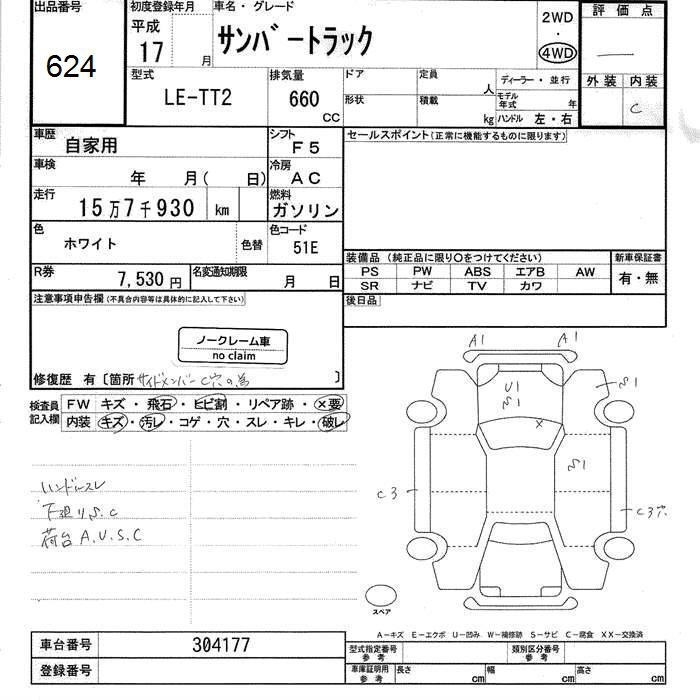 出品番号
624
初度登録年月
平成
17 月
車名・グレード
サンバートラック
2WD
・
4WD
評価点
—
外装 内装
C
型式
LE-TT2
排気量
660
CC
ドア 定員
人
形状 積載
kg
ディーラー・並行
モデル年式 年
ハンドル 左・右
車歴
自家用
シフト
F5
車検
年 月( 日)
冷房
AC
走行
15万7千930 km
燃料
ガソリン
色
ホワイト
色替
色コード
51E
R券
7,530円
名変通知期限
月 日
セールスポイント(正常に機能するものに限ります)
装備品(純正品に限り○をつけてください)
PS PW ABS エアB AW
SR ナビ TV カワ
新車保証書
有・無
後日品
注意事項申告欄(不具合内容等は具体的に記入して下さい)
ノークレーム車
no claim
修復歴 有〔箇所 サイドメンバーC穴の為 〕
検査員記入欄
FW キズ・飛石・ヒビ割・リペア跡・×要
内装 キズ・汚レ・コゲ・穴・スレ・キレ・破レ
ハンドルスレ
下廻りS.C
荷台A.U.S.C
A1 A1
U1
S1
S1
×
S1
C3
C3穴
スペア
A-キズ E-エクボ U-凹み W-補修跡 S-サビ C-腐食 XX-交換済
車台番号
304177
登録番号
型式指定番号参考
類別区分番号参考
車庫証明用参考
長さ cm 幅 cm 高さ cm